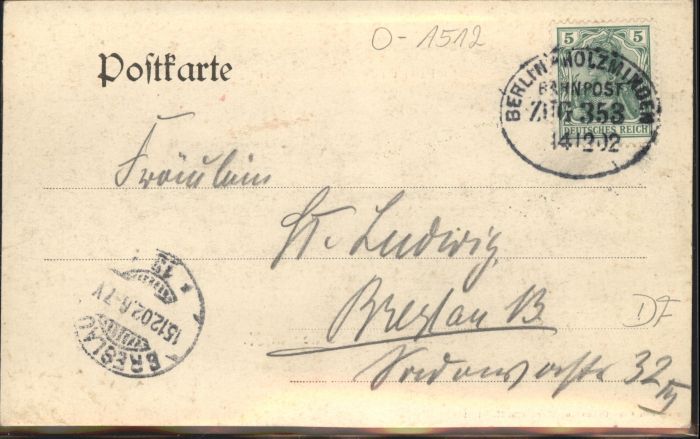 O-1512
Postkarte
5 5
DEUTSCHES REICH
BERLIN HOLZMINDEN
BAHNPOST
ZUG 353
14 12 02
Fräulein
St. Ludwig,
Breslau
DF
32
BRESLAU
15.12.02.6-7V